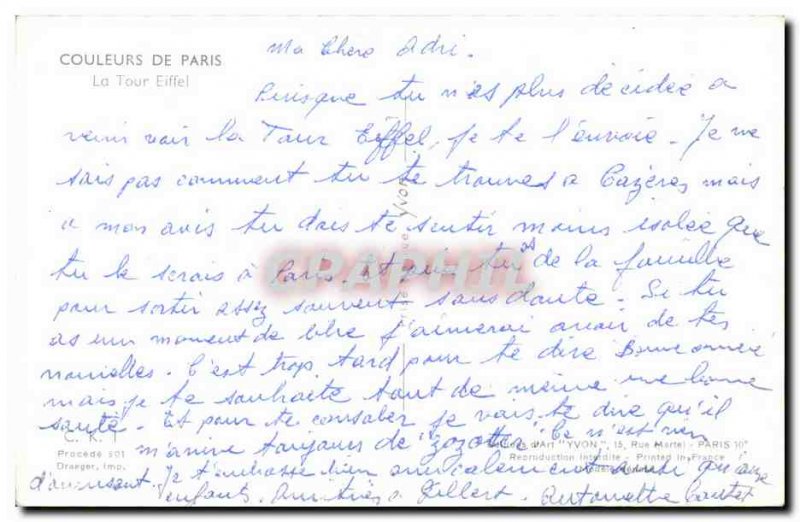 COULEURS DE PARIS
La Tour Eiffel
Ma chere Adri.
Puisque tu n'es plus décidée a
venir voir la Tour Eiffel, je te l'envoie. Je ne
sais pas comment tu te trouves a Cazères mais
a mon avis tu dois te sentir moins isolée que
tu le serais à Paris. Et puis tu as de la famille
pour sortir assez souvent sans doute. Si tu
as un moment de libre j'aimerai avoir de tes
nouvelles. C'est trop tard pour te dire Bonne année
mais je te souhaite tout de meme une bonne
santé. Et pour te consoler je vais te dire qu'il
m'arrive toujours de "zozotter" Ce n'est rien
d'amusant. Je t'embrasse bien amicalement ainsi qu'aux
enfants. Amitiés a Gilbert. Antoinette
C. K. T.
Procédé 301
Draeger, Imp.
d'Art "YVON", 15, Rue Martel - PARIS 10e
Reproduction Interdite - Printed in France
YVON
CPAPHIL